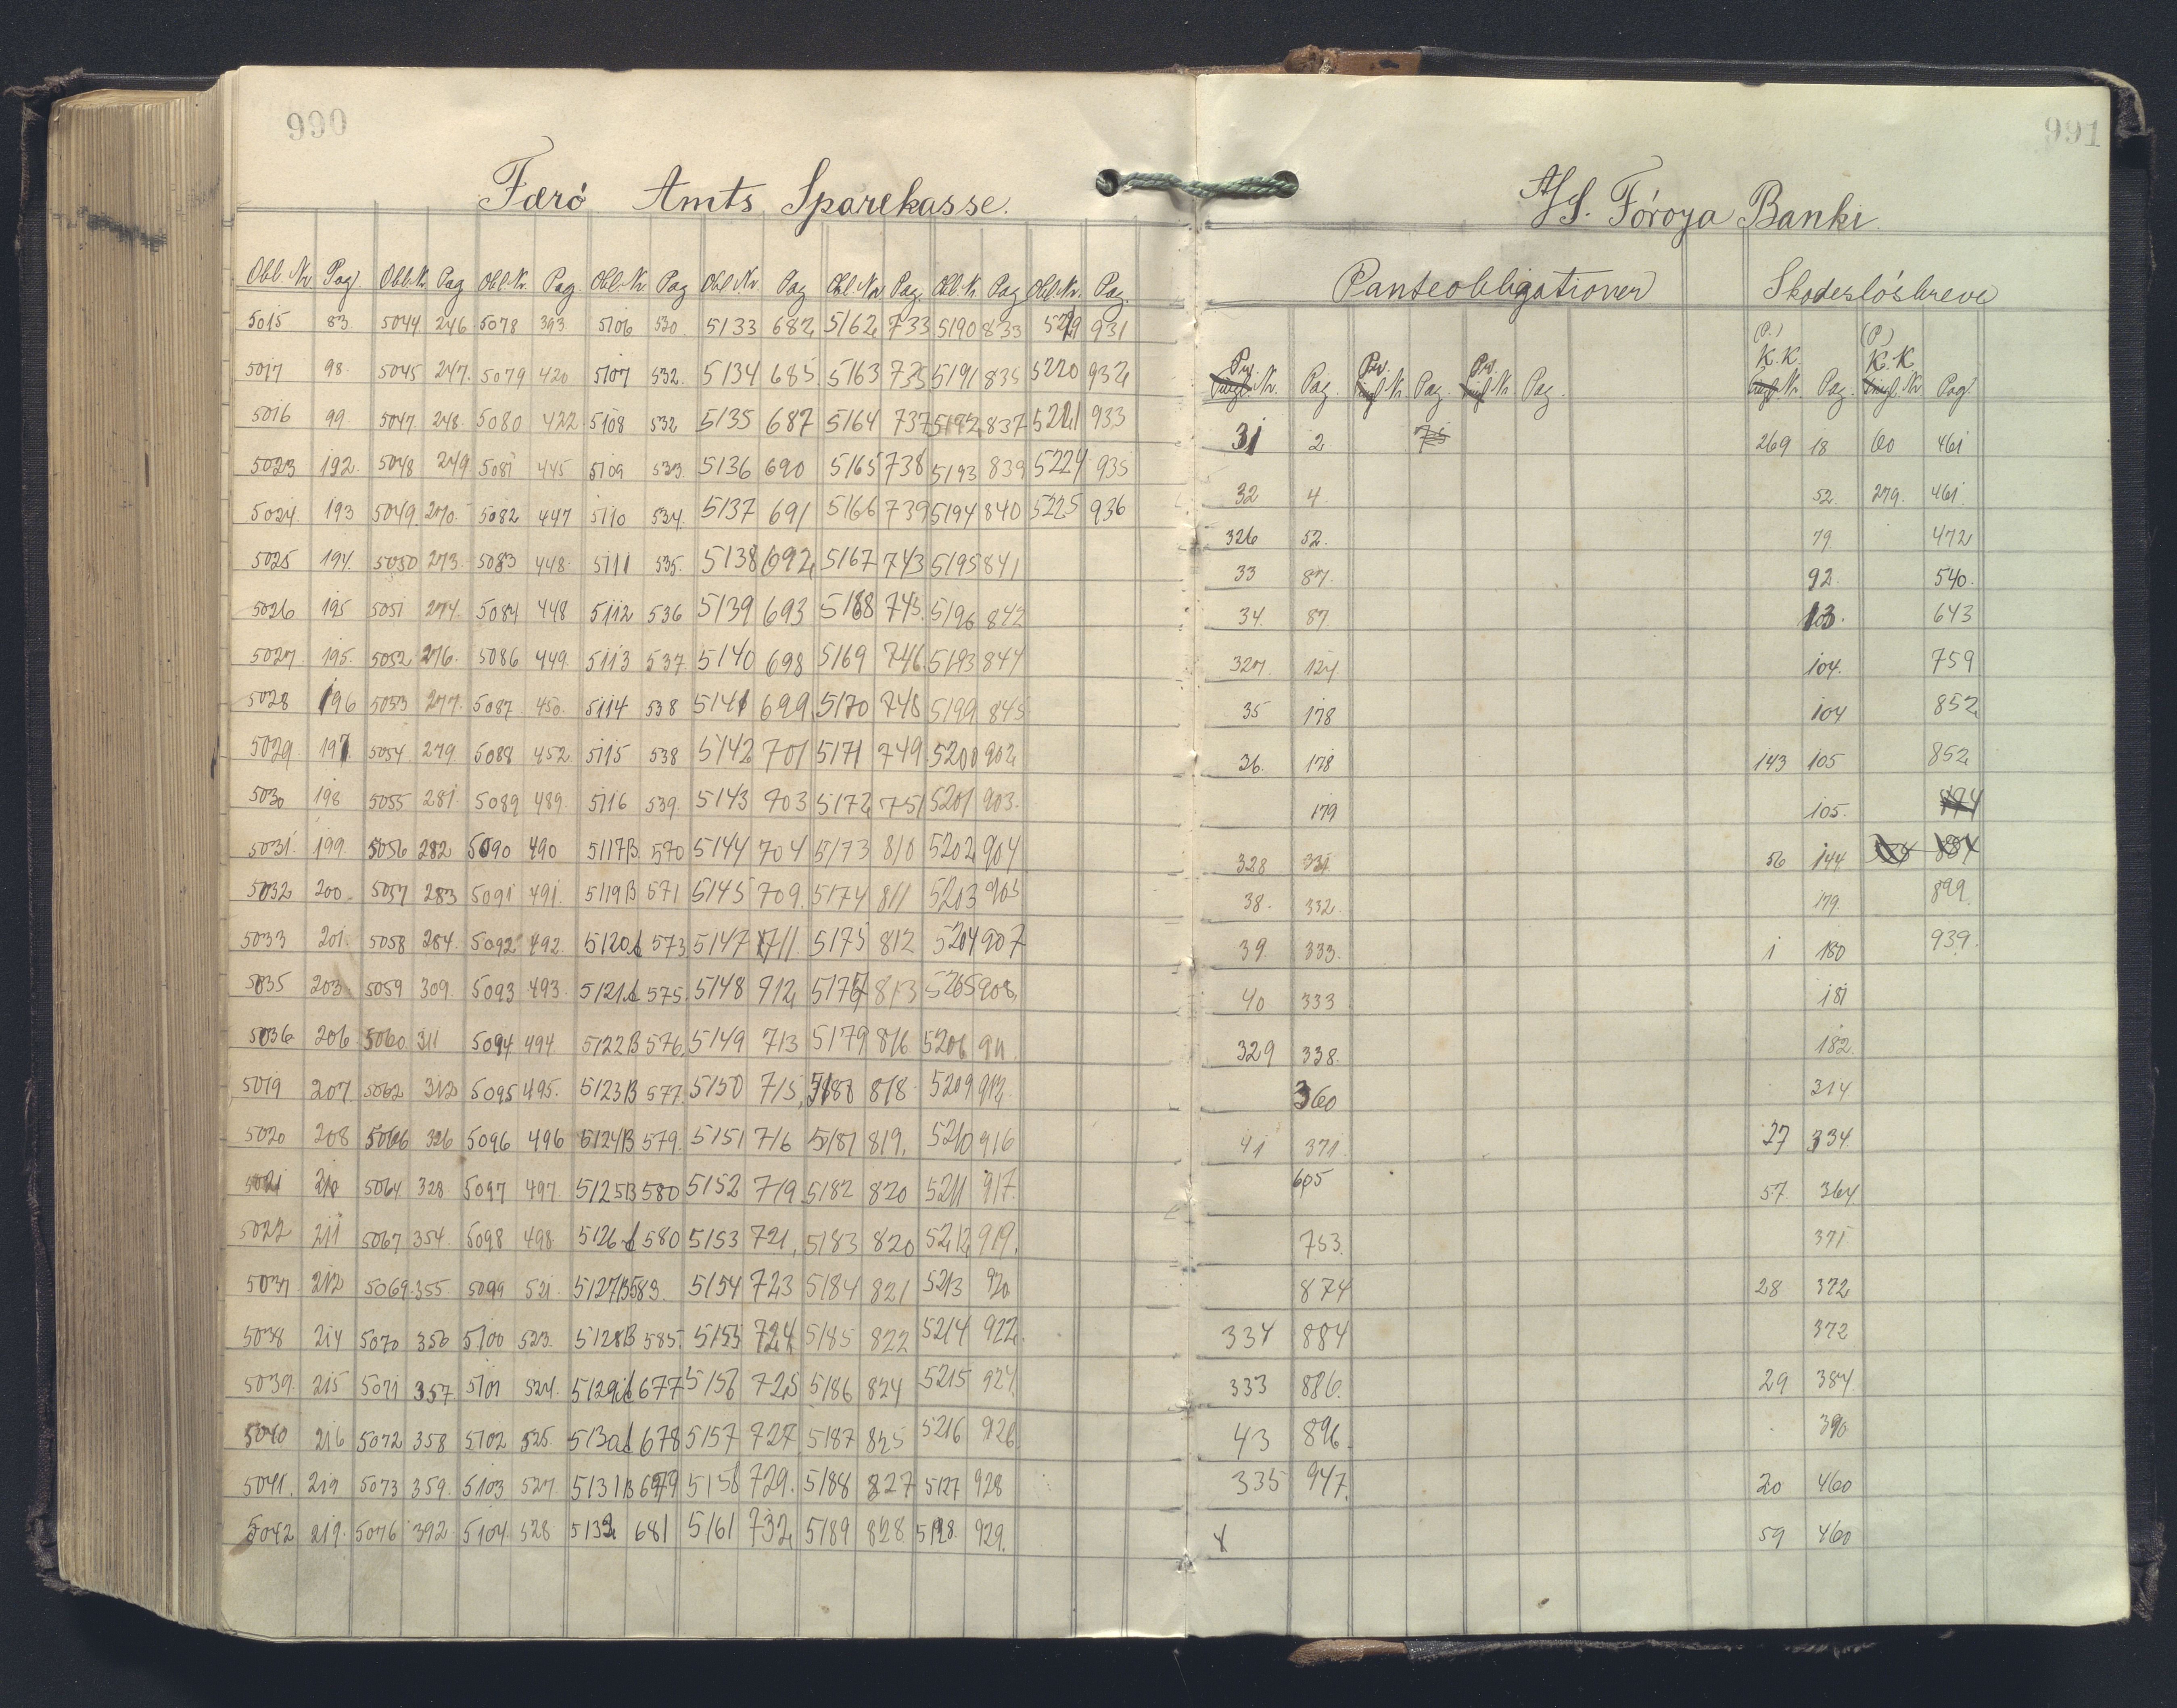 990
Færö Amts Sparekasse.
Obl. Nr Pag. Obl. Nr Pag Obl. Nr. Pag. Obl. Nr Pag Obl. Nr. Pag Obl. Nr Pag. Obl. Nr Pag Obl. Nr. Pag.
5015 83. 5044 246 5078 393. 5106 530. 5133 682 5162 733 5190 833 5219 931
5017 98. 5045 247. 5079 420 5107 532. 5134 685. 5163 735 5191 835 5220 932
5016 99. 5047. 248. 5080 422 5108 532 5135 687 5164 737 5192 837 5221 933
5023 192. 5048 249. 5081 445 5109 533. 5136 690 5165 738 5193 839 5224 935
5024. 193 5049. 270. 5082 447 5110 534. 5137 691 5166 739 5194 840 5225 936
5025 194. 5050 273. 5083 448. 5111 535. 5138 692 5167 743 5195 841
5026 195 5051 274. 5084 448 5112 536 5139 693 5168 745. 5196 842
5027. 195. 5052 276. 5086 449. 5113 537. 5140 698 5169 746 5193 844
5028 196 5053 277. 5087 450. 5114 538 5141 699 5170 748 5199 845
5029. 197. 5054. 279. 5088 452 5115 538 5142 701 5171 749 5200 902
5030 198 5055 281. 5089 489. 5116 539. 5143 703 5172 751 5201 903.
5031. 199. 5056 282 5090 490 5117B. 570 5144 704 5173 810 5202 904
5032 200. 5057 283 5091 491. 5119B 571 5145 709. 5174 811 5203 905
5033 201. 5058 284. 5092 492. 5120 573 5147 711. 5175 812 5204 907
5035 203. 5059 309. 5093 493. 5121 575. 5148 912 5176 813 5205 908
5036 206 5060. 311 5094 494 5122B 576. 5149 713 5179 816 5206 911.
5019 207 5062 312 5095 495. 5123B 577. 5150 715, 5180 818 5209 912.
5020 208 5066 326 5096 496 5124B 579. 5151 716 5181 819. 5210 916
5021 210 5064 328. 5097 497. 5125B 580 5152 719 5182 820 5211 917.
5022 211 5067 354. 5098 498. 5126 580 5153 721, 5183 820 5212 919.
5037 212 5069. 355. 5099 521. 5127B 583. 5154 723 5184 821 5213 920
5038 214 5070 356 5100 523. 5128B 585. 5155 724 5185 822 5214 922.
5039. 215 5071 357. 5101 524. 5129 677 5156 725 5186 824 5215 924.
5040 216 5072 358 5102 525 5130 678 5157 727 5187 825 5216 926
5041. 219 5073 359. 5103 527. 5131B 679 5158 729. 5188 827 5127 928
5042 219. 5076 392 5104. 528 5132 681 5161 732 5189 828 5128. 929.
991
A/S. Föroya Banki.
Panteobligationer Skadesløsbreve
(P.) (P.)
Prv. Prv. Prv. K. K. K. K
Nr. Pag. Nr Pag. Nr Pag. Nr. Pag. Nr Pag.
31 2 75 269 18 60 461
32 4. 52. 279. 461.
326 52. 79. 472
33 87. 92. 540.
34. 87. 103. 643
327. 124. 104. 759
35 178 104 852
36. 178 143 105 852
179 105. 894
328 331. 56 144 884
38. 332. 179. 899.
39. 333. 1 180 939.
40 333 181
329 338. 182.
360 314
41 371. 27 334.
605 57 364.
753. 371
874 28 372
334 884 372
333 886. 29 384.
43 896. 390
335 947. 20 460
59 460